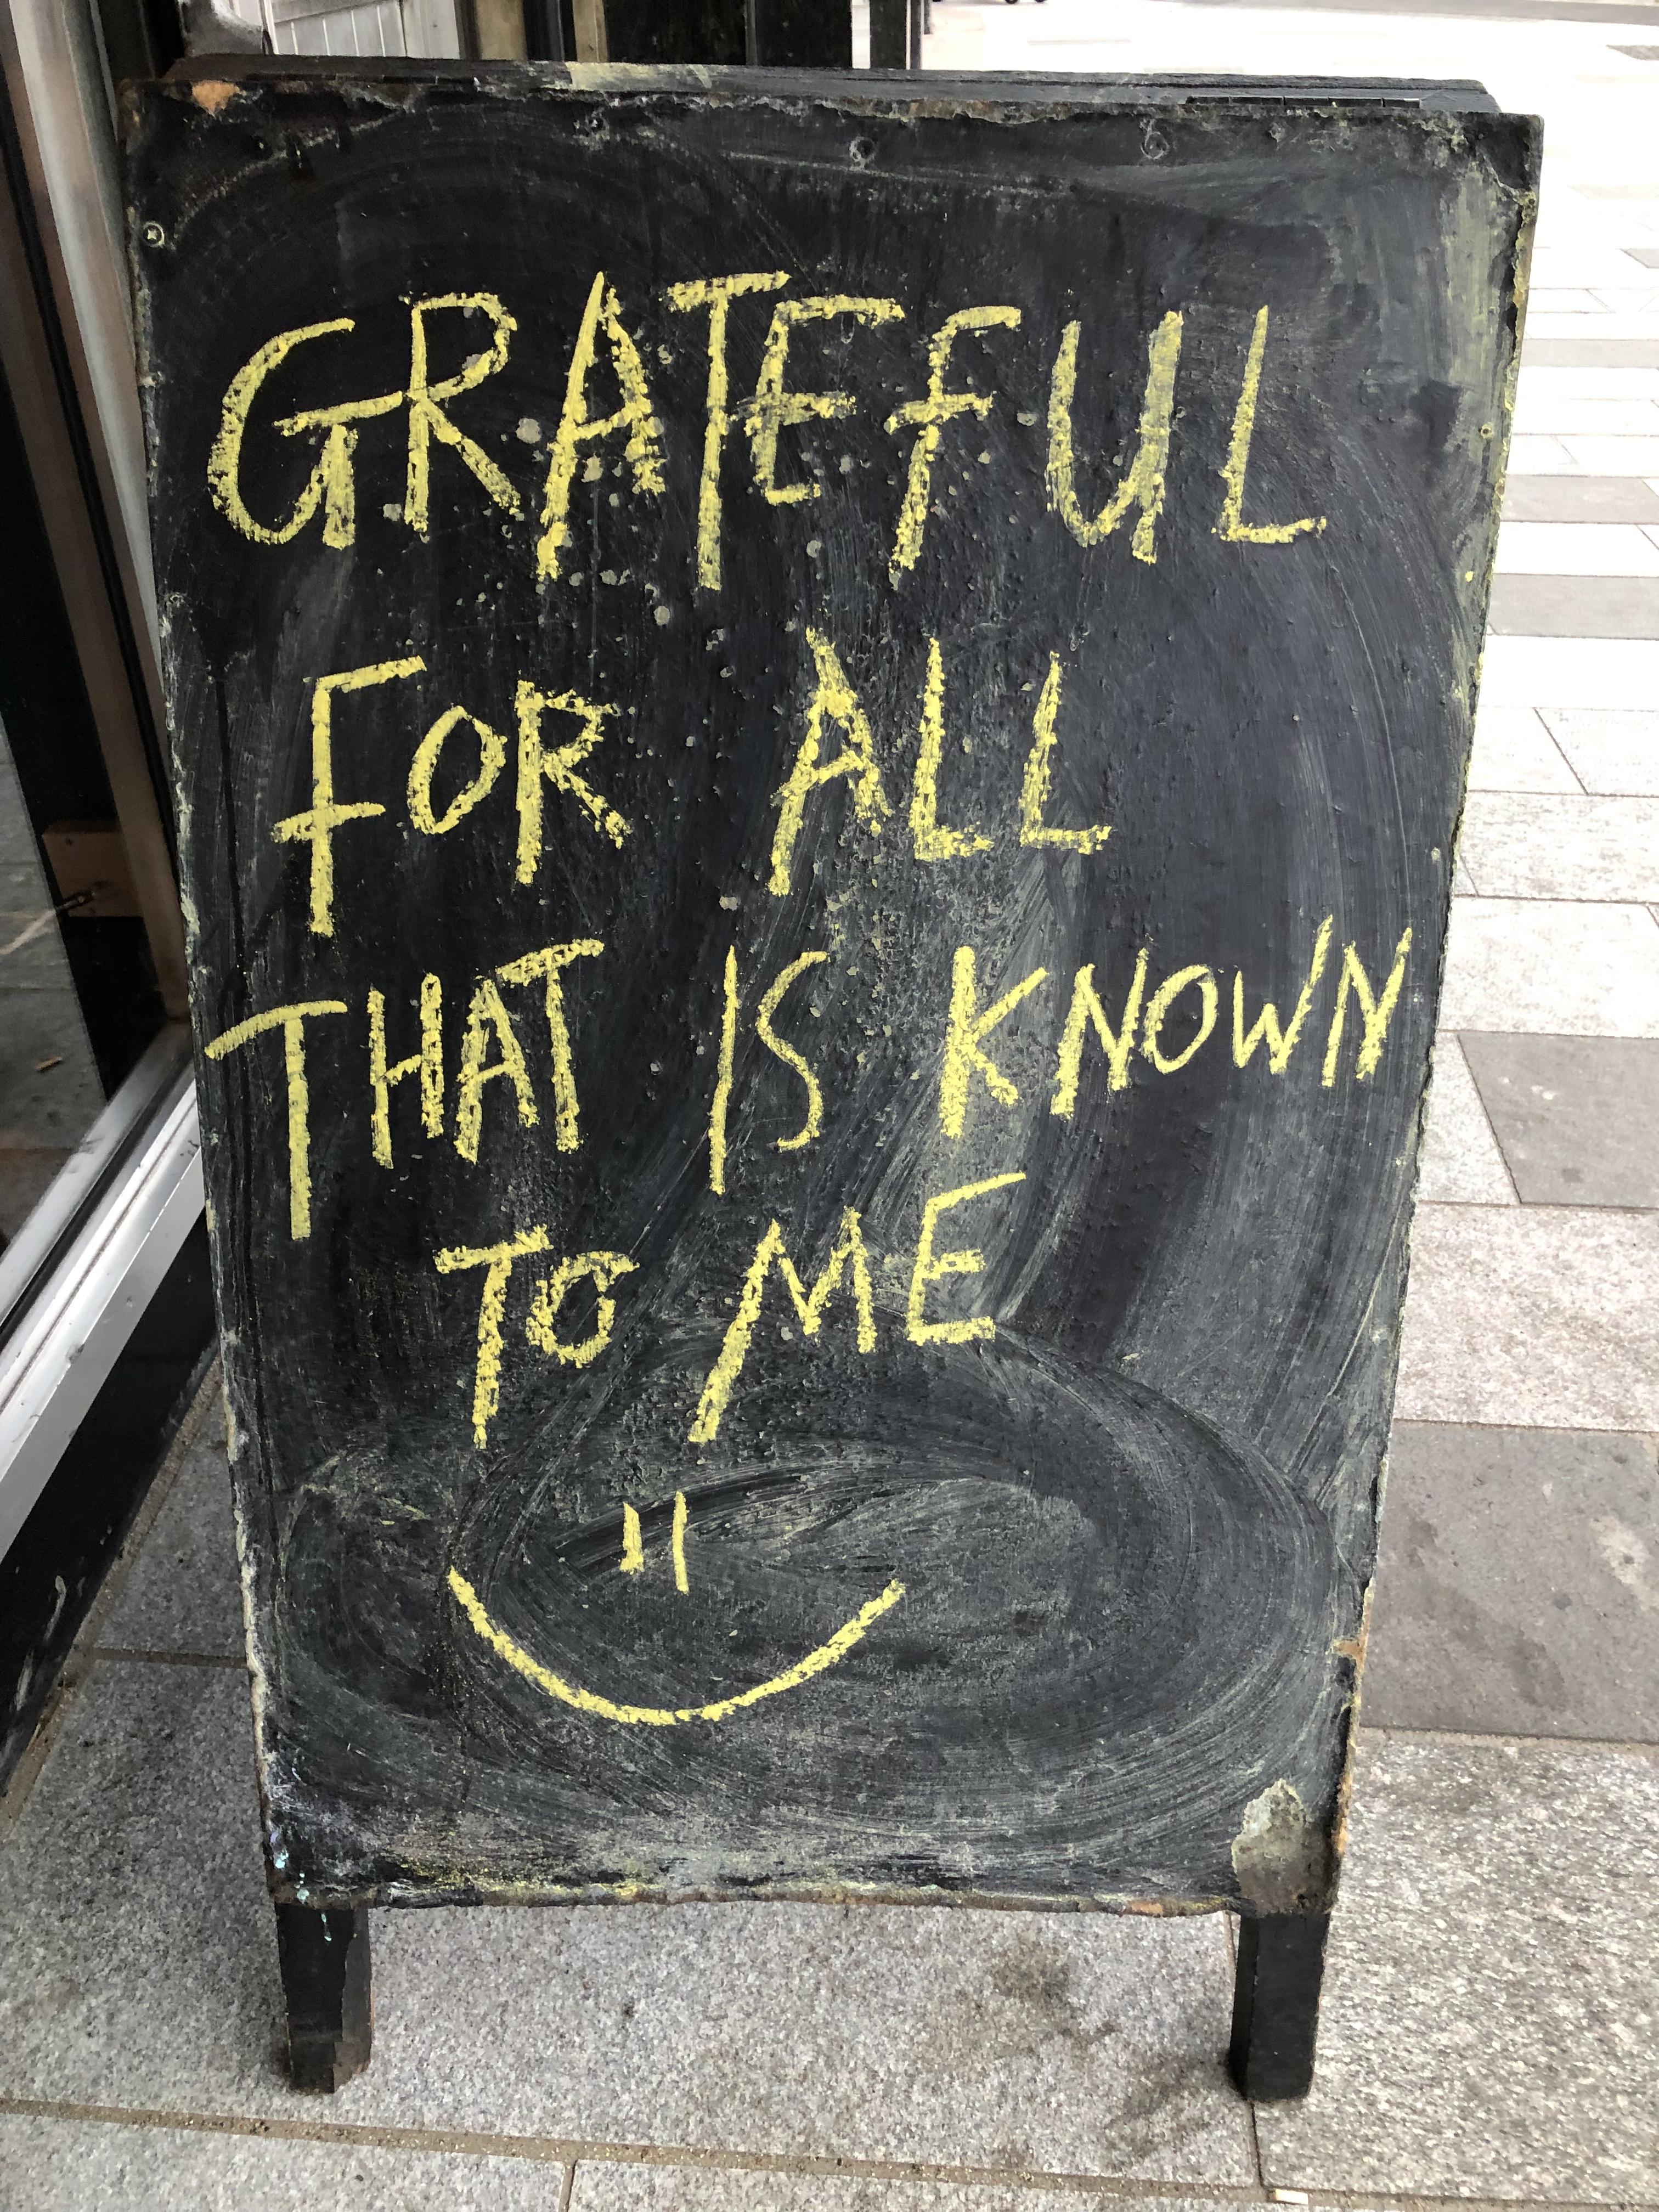 GRATEFUL
FOR ALL
THAT IS KNOWN
TO ME